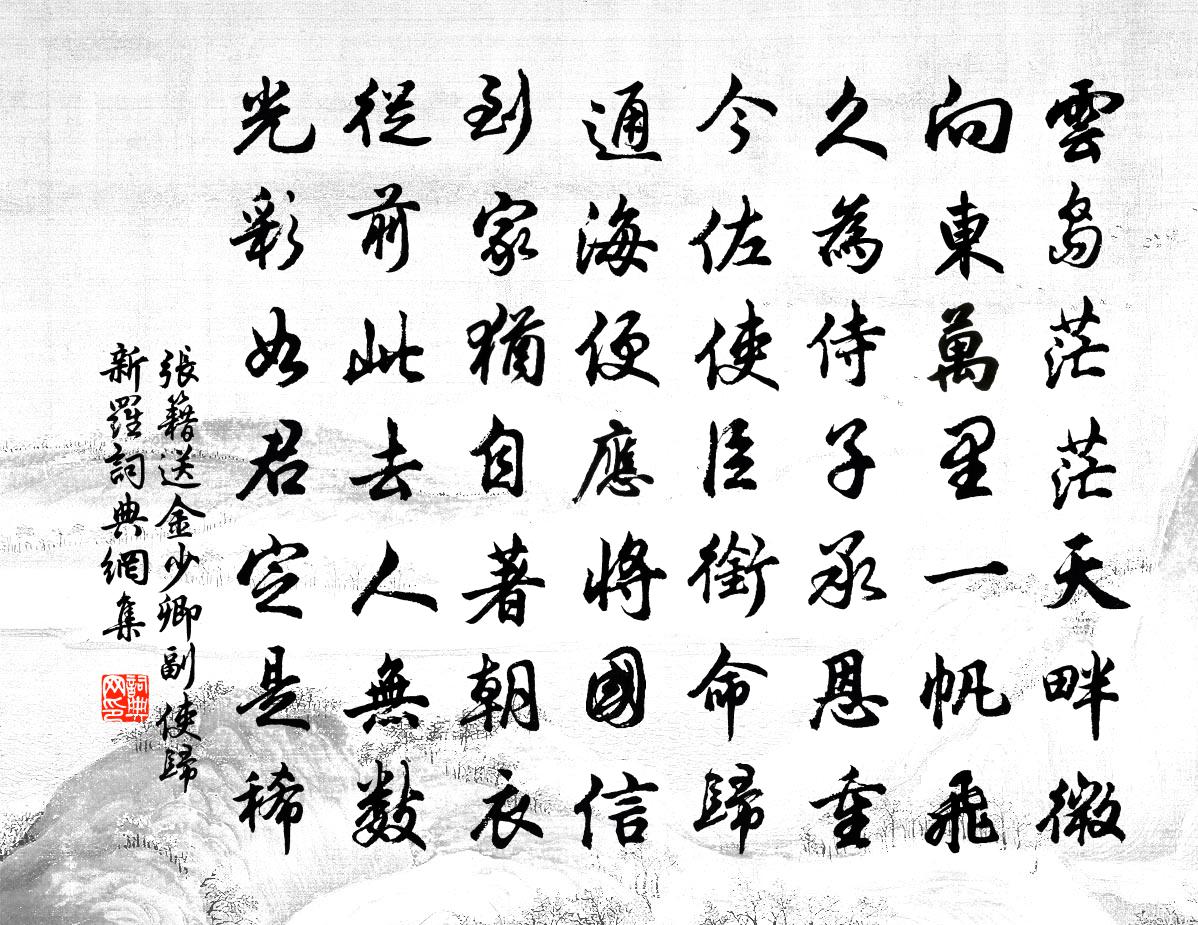 雲島茫茫天畔微
向東萬里一帆飛
久為侍子承恩重
今佐使臣銜命歸
通海便應將國信
到家猶自著朝衣
從前此去人無數
光彩如君定是稀
張籍送金少卿副使歸
新羅詞典網集
詞典
网印